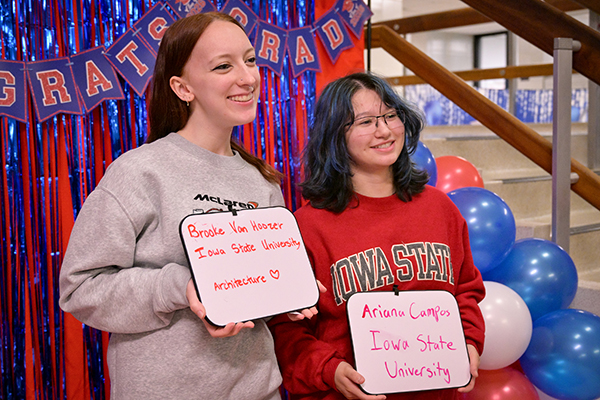 GRATS GRAD
McLaren
Brooke Van Hoozer
Iowa State University
Architecture ♡
IOWA STATE
Ariana Campos
Iowa State
University